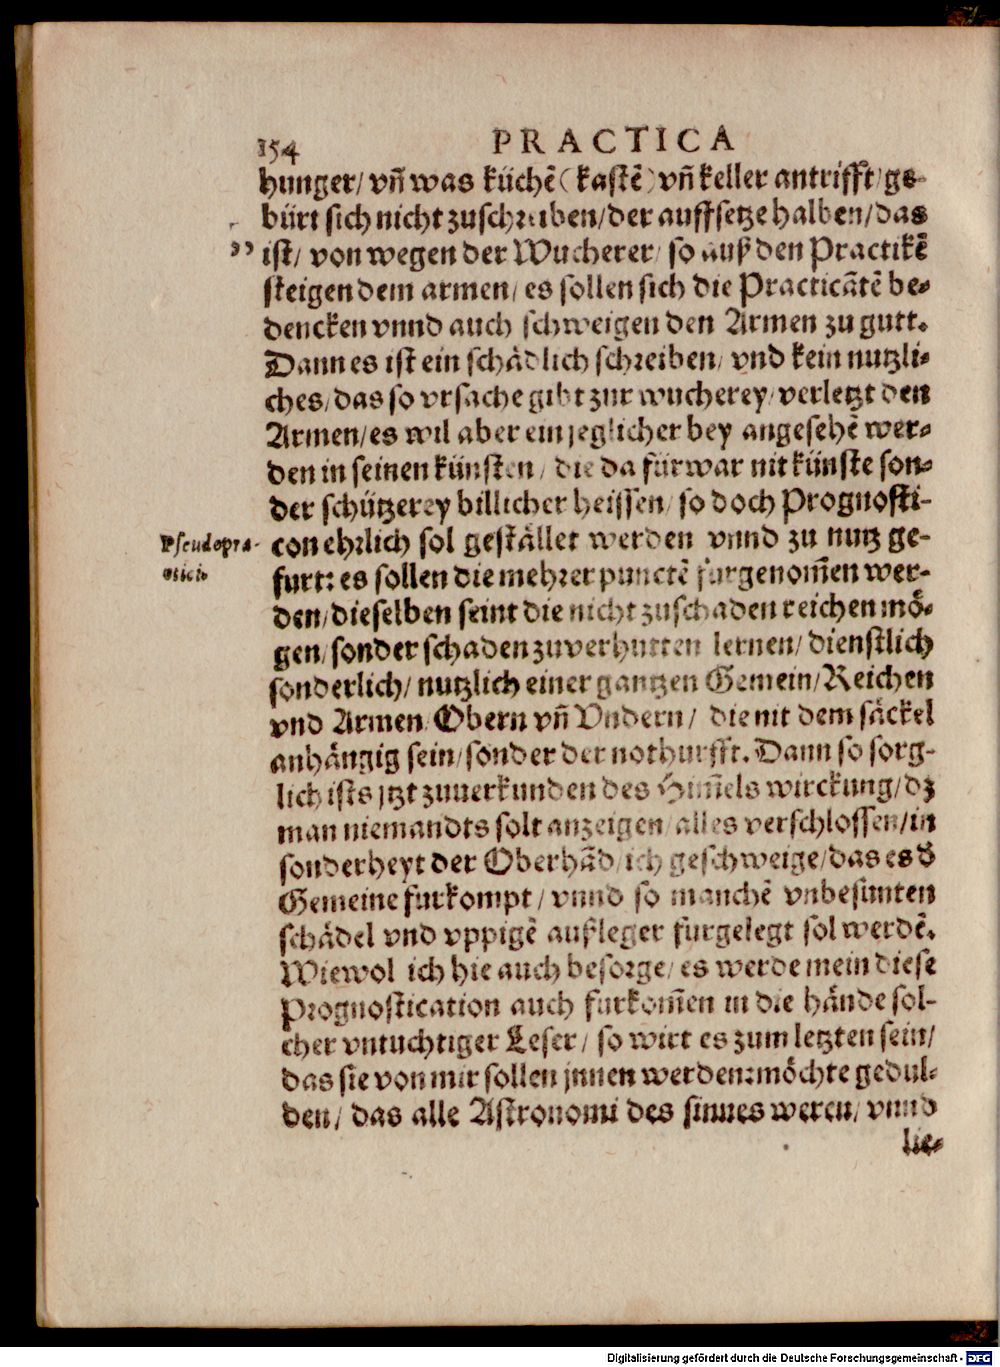 154 PRACTICA
hunger/ vñ was küchē (kastē) vñ keller antrifft/ ge-
bürt sich nicht zuschreiben/ der auffsetze halben/ das
ist/ von wegen der Wucherer/ so auß den Practikē
steigen dem armen/ es sollen sich die Practicātē be-
dencken vnnd auch schweigen den Armen zu gutt.
Dann es ist ein schädlich schreiben/ vnd kein nutzli-
ches/ das so vrsache gibt zur wucherey/ verletzt den
Armen/ es wil aber ein jeglicher bey angesehē wer-
den in seinen künsten/ die da fürwar nit künste son-
der schützerey billicher heissen/ so doch Prognosti-
con ehrlich sol gestället werden vnnd zu nutz ge-
Pseudopra-
ctici
furt: es sollen die mehrer punctē furgenom̄en wer-
den/ dieselben seint die nicht zuschaden reichen mö-
gen/ sonder schaden zuverhutten lernen/ dienstlich
sonderlich/ nutzlich einer gantzen Gemein/ Reichen
vnd Armen/ Obern vñ Vndern/ die nit dem säckel
anhängig sein/ sonder der nothurfft. Dann so sorg-
lich ists jtzt zuuerkunden des Him̄els wirckung/ dz
man niemandts solt anzeigen/ alles verschlossen/ in
sonderheyt der Oberhād/ ich geschweige/ das es d'
Gemeine furkompt/ vnnd so manchē vnbesunten
schädel vnd vppigē außleger furgelegt sol werdē.
Wiewol ich hie auch besorge/ es werde mein diese
Prognostication auch furkom̄en in die hände sol-
cher vntuchtiger Leser/ so wirt es zum letzten sein/
das sie von mir sollen jnnen werden: möchte gedul-
den/ das alle Astronomi des sinnes weren/ vnnd
lie-
Digitalisierung gefördert durch die Deutsche Forschungsgemeinschaft - DFG